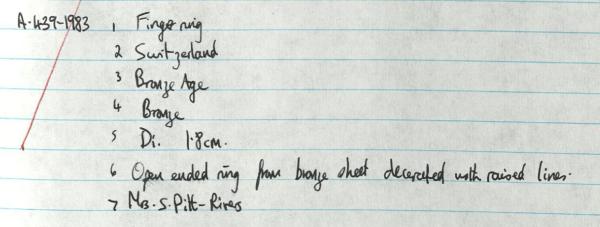 A.439-1983 1 Finger ring
2 Switzerland
3 Bronze Age
4 Bronze
5 Di. 1.8cm.
6 Open ended ring from bronze sheet decorated with raised lines.
7 Mrs. S. Pitt-Rivers